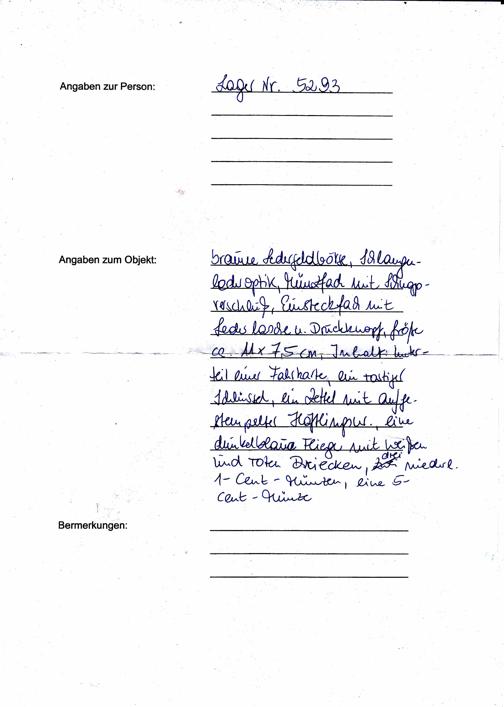 Angaben zur Person: Lager Nr. 5293
Angaben zum Objekt: braune Ledergeldbörse, Schlangen-
lederoptik, Münzfach mit Schnapp-
verschluß, Einsteckfach mit
Lederlasche u. Druckknopf, Größe
ca. 11 x 7,5 cm, Inhalt: Unter-
teil einer Fahrkarte, ein rostiger
Schlüssel, ein Zettel mit aufge-
stempelter Häftlingsnr., eine
dunkelblaue Fliege mit weißen
und roten Dreiecken, drei niederl.
1-Cent-Münzen, eine 5-
Cent-Münze
Bermerkungen: